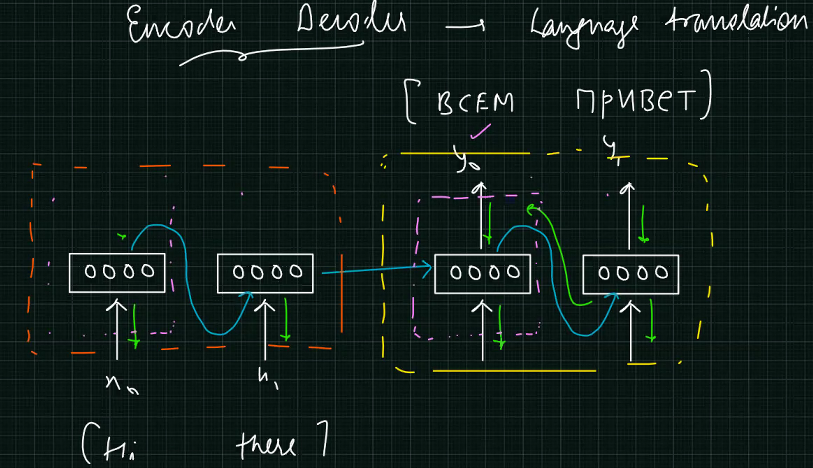 Encoder Decoder → Language translation
[ ВСЕМ ПРИВЕТ ]
y₀ y₁
0000 0000 0000 0000
x₀ x₁
[ Hi there ]